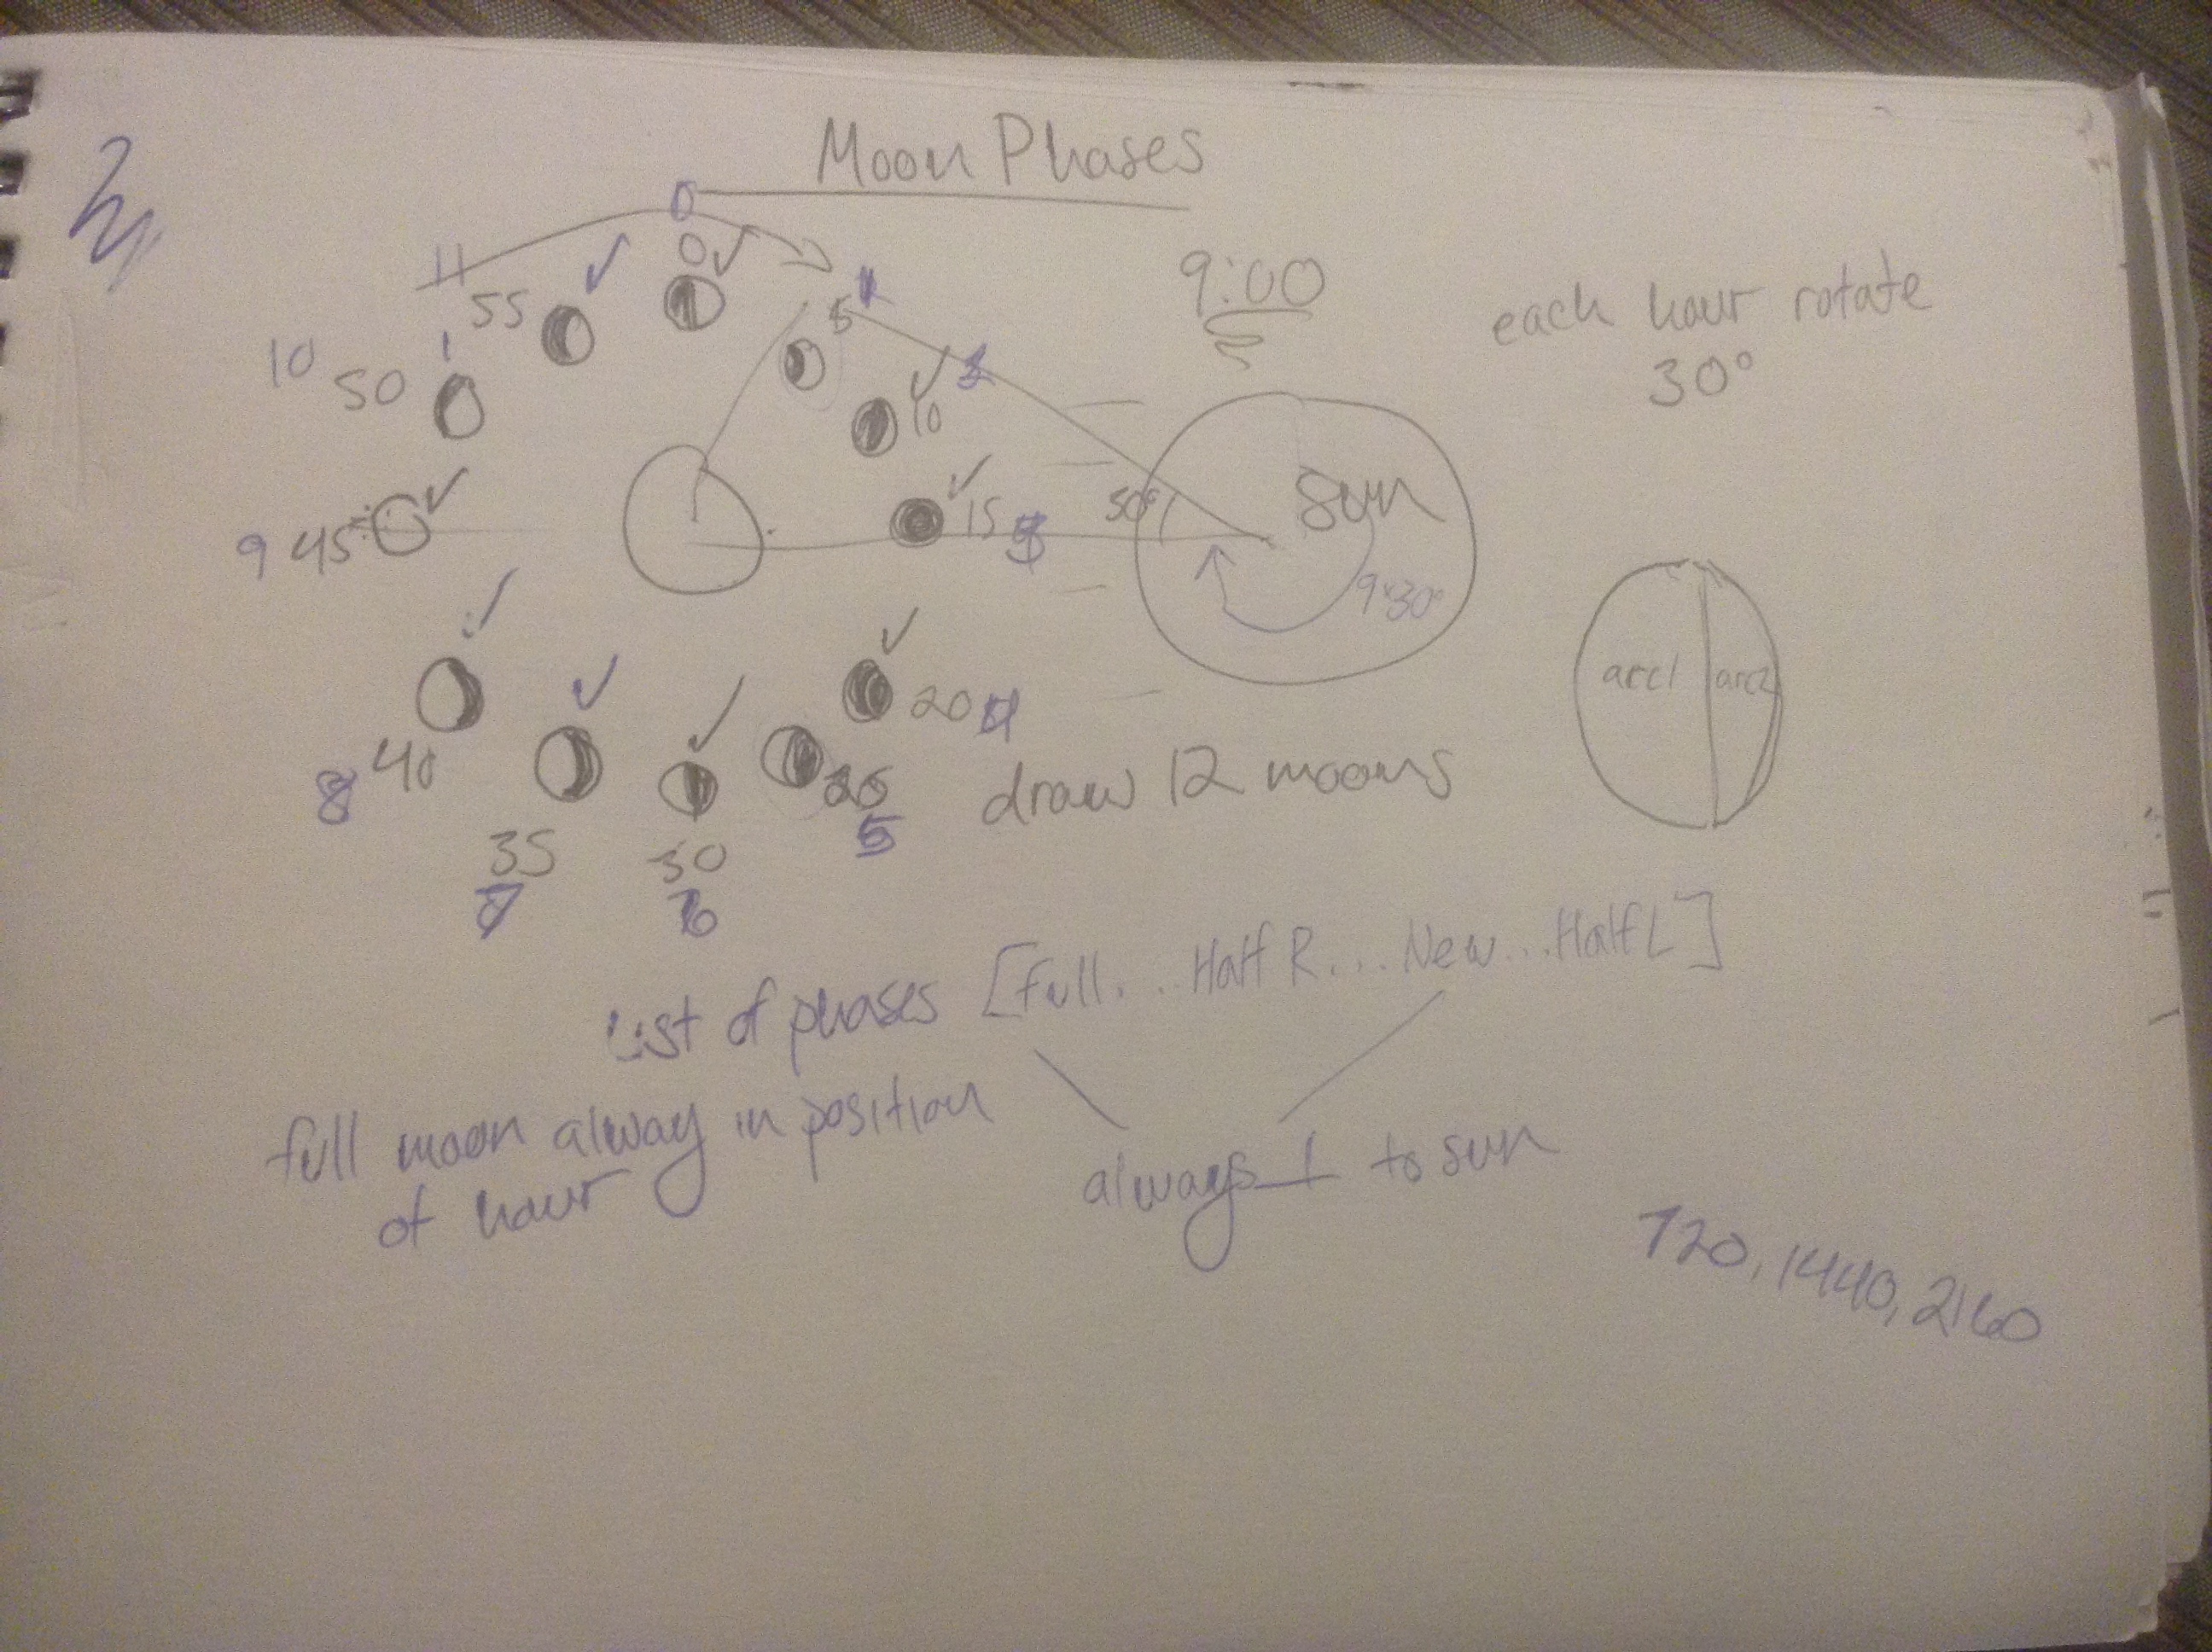 Moon Phases
0
11
55
0
1
5
9:00
each hour rotate
30°
10
50
2
10
9 45
15 3
50°
Sun
9×30°
arc1 arc2
20 4
8 40
25
5
draw 12 moons
35
7
30
6
List of phases [Full...Half R...New...Half L]
full moon alway in position
of hour
always ⊥ to sun
720, 1440, 2160